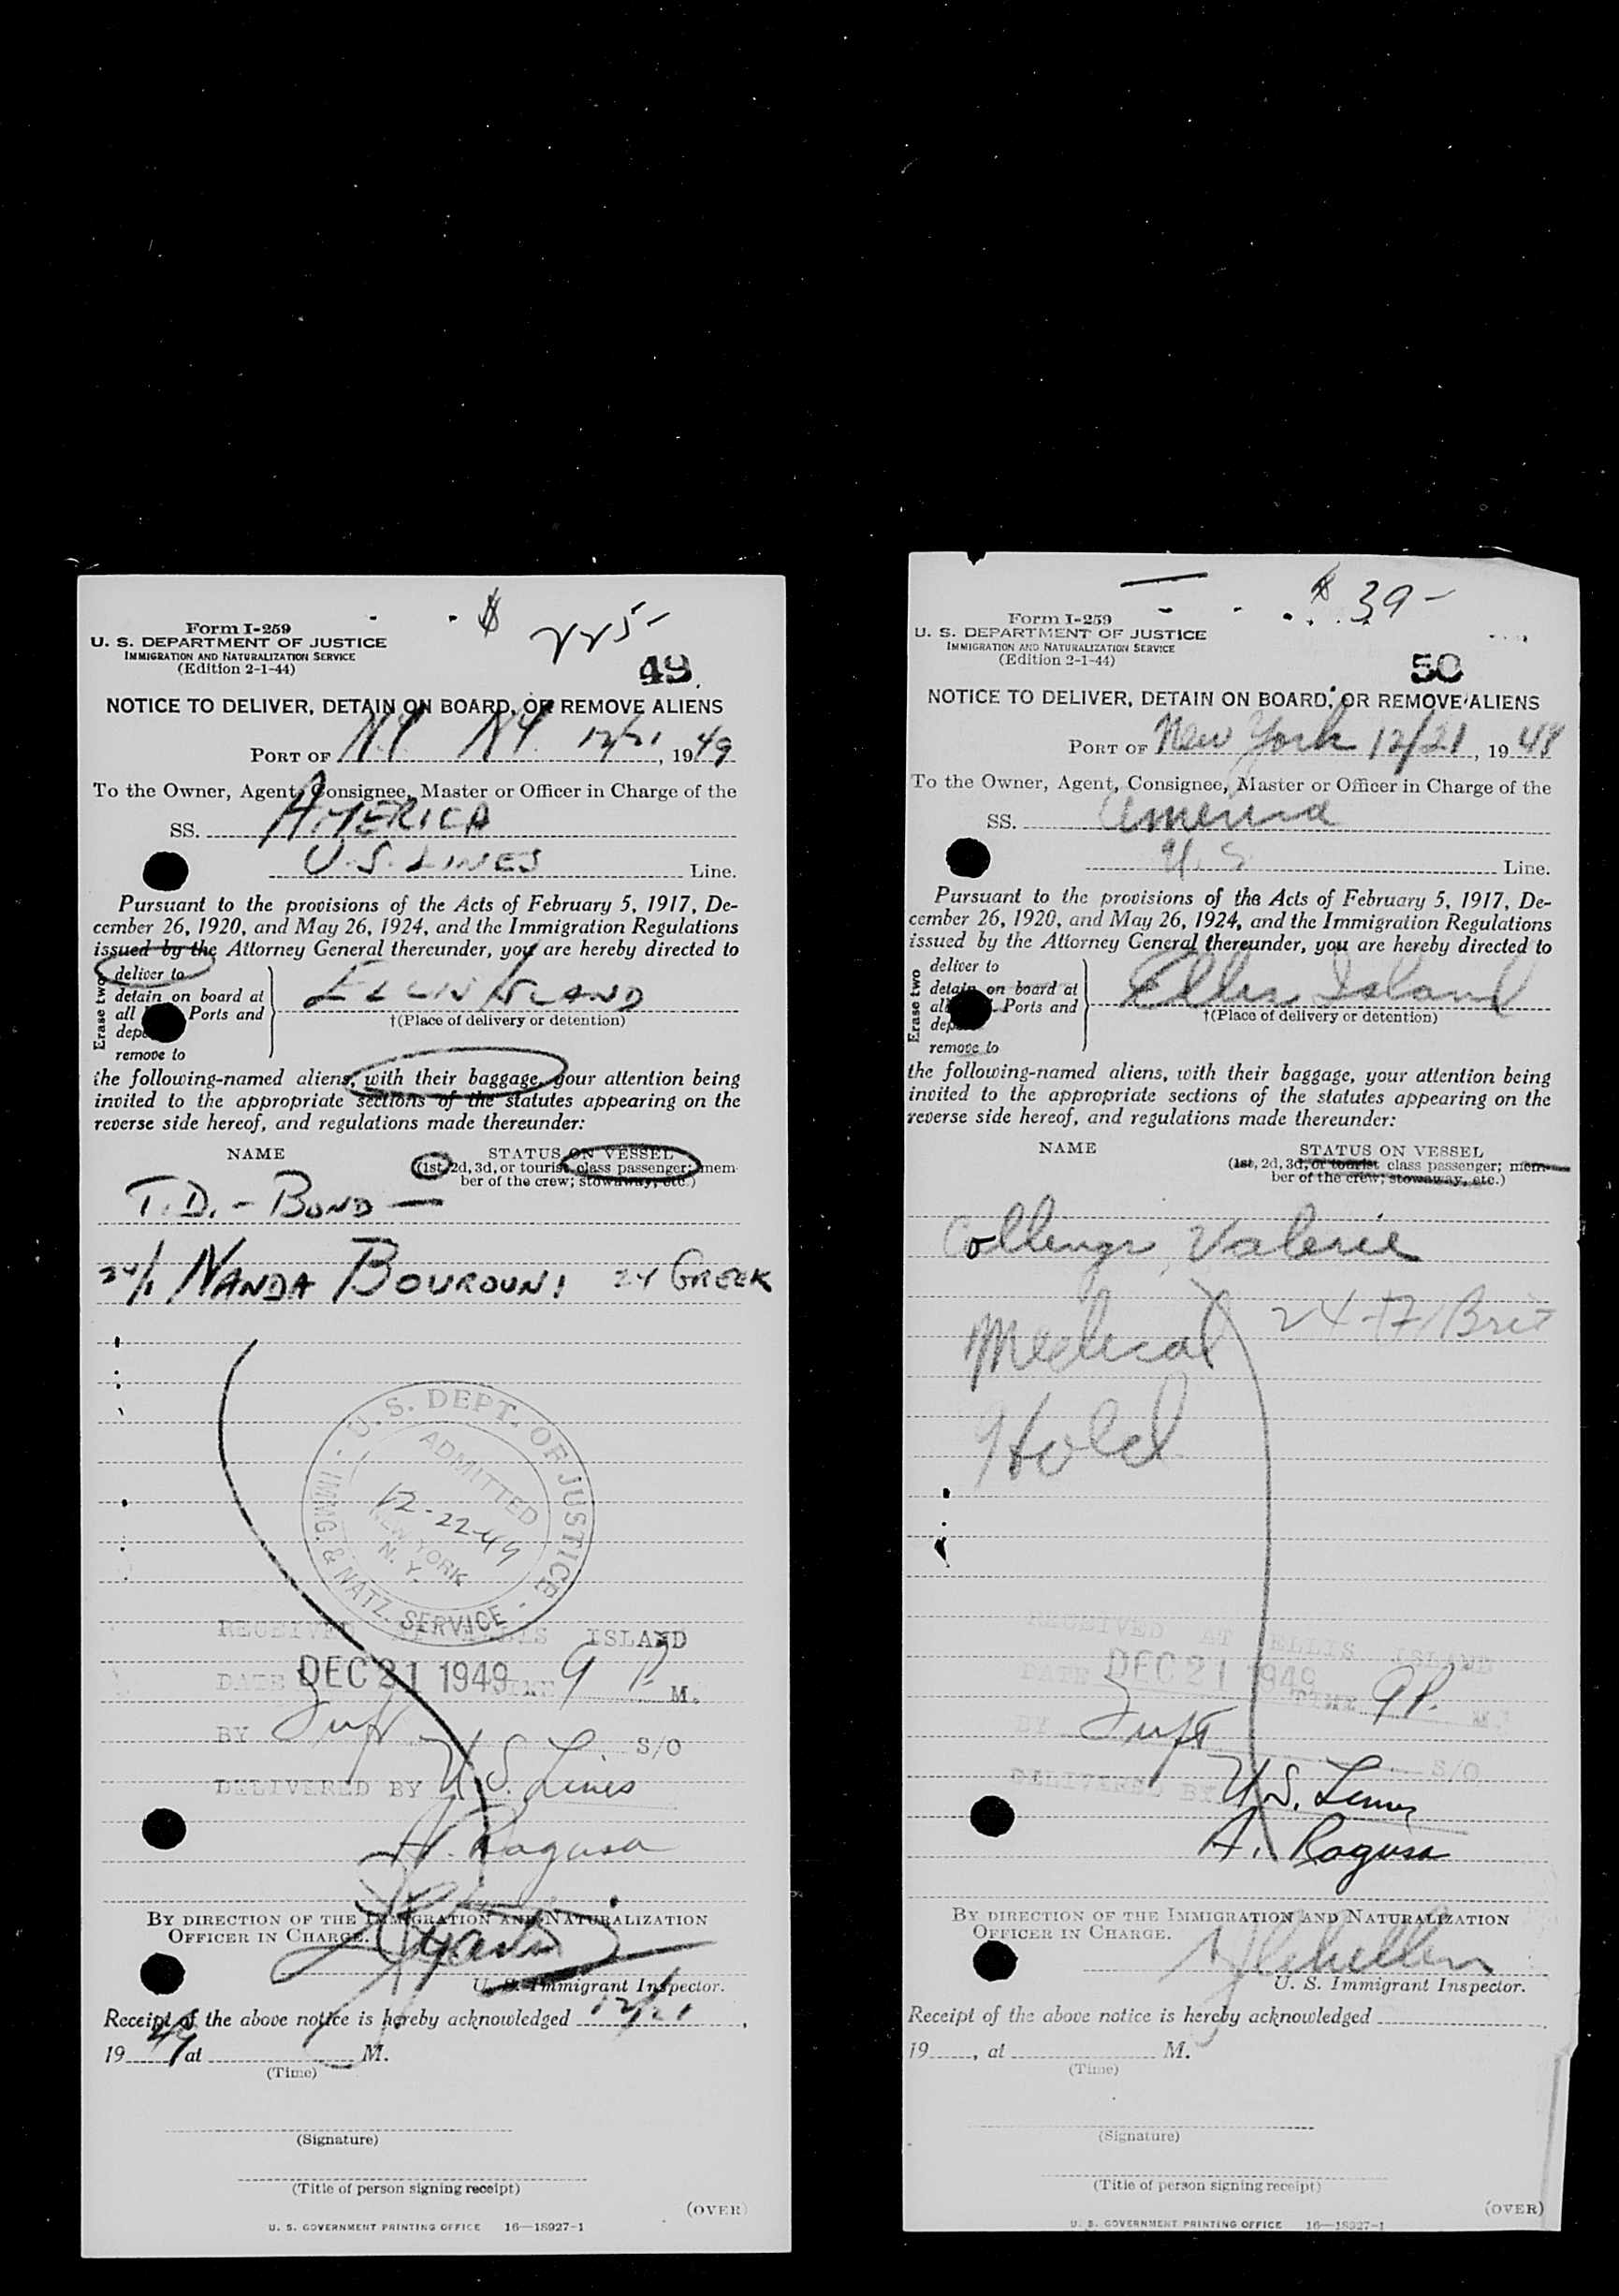 $ 225-
Form I-259
U. S. DEPARTMENT OF JUSTICE
IMMIGRATION AND NATURALIZATION SERVICE
(Edition 2-1-44)
49
NOTICE TO DELIVER, DETAIN ON BOARD, OR REMOVE ALIENS
PORT OF N.Y. N.Y. 12/21, 1949
To the Owner, Agent, Consignee, Master or Officer in Charge of the
SS. AMERICA
U.S. LINES Line.
Pursuant to the provisions of the Acts of February 5, 1917, De-
cember 26, 1920, and May 26, 1924, and the Immigration Regulations
issued by the Attorney General thereunder, you are hereby directed to
Erase two
deliver to
detain on board at
all Ports and
remove to
ELLIS ISLAND
†(Place of delivery or detention)
the following-named aliens, with their baggage, your attention being
invited to the appropriate sections of the statutes appearing on the
reverse side hereof, and regulations made thereunder:
NAME STATUS ON VESSEL
(1st, 2d, 3d, or tourist class passenger; mem-
ber of the crew; stowaway, etc.)
T.D. - BOND -
24/1 NANDA BOUROUNI 24 GREEK
U. S. DEPT. OF JUSTICE
IMMG. & NATZ. SERVICE
ADMITTED
12-22-49
NEW YORK
N. Y.
RECEIVED AT ELLIS ISLAND
DATE DEC 21 1949 TIME 9 P. M.
BY S/O
DELIVERED BY U.S. Lines
A. Ragusa
BY DIRECTION OF THE IMMIGRATION AND NATURALIZATION
OFFICER IN CHARGE.
U. S. Immigrant Inspector.
Receipt of the above notice is hereby acknowledged 12/21,
1949 at M.
(Time)
(Signature)
(Title of person signing receipt)
(OVER)
U. S. GOVERNMENT PRINTING OFFICE 16—18927-1
$ 39-
Form I-259
U. S. DEPARTMENT OF JUSTICE
IMMIGRATION AND NATURALIZATION SERVICE
(Edition 2-1-44)
50
NOTICE TO DELIVER, DETAIN ON BOARD, OR REMOVE ALIENS
PORT OF New York 12/21, 1949
To the Owner, Agent, Consignee, Master or Officer in Charge of the
SS. America
U.S. Line.
Pursuant to the provisions of the Acts of February 5, 1917, De-
cember 26, 1920, and May 26, 1924, and the Immigration Regulations
issued by the Attorney General thereunder, you are hereby directed to
Erase two
deliver to
detain on board at
Ports and
remove to
Ellis Island
†(Place of delivery or detention)
the following-named aliens, with their baggage, your attention being
invited to the appropriate sections of the statutes appearing on the
reverse side hereof, and regulations made thereunder:
NAME STATUS ON VESSEL
(1st, 2d, 3d, or tourist class passenger; mem-
ber of the crew; stowaway, etc.)
Collings, Valerie
24-17 Brit
Medical
Hold
RECEIVED AT ELLIS ISLAND
DATE DEC 21 1949 TIME 9 P. M.
BY S/O
DELIVERED BY U.S. Lines
A. Ragusa
BY DIRECTION OF THE IMMIGRATION AND NATURALIZATION
OFFICER IN CHARGE.
U. S. Immigrant Inspector.
Receipt of the above notice is hereby acknowledged
19, at M.
(Time)
(Signature)
(Title of person signing receipt)
(OVER)
U. S. GOVERNMENT PRINTING OFFICE 16—18927-1